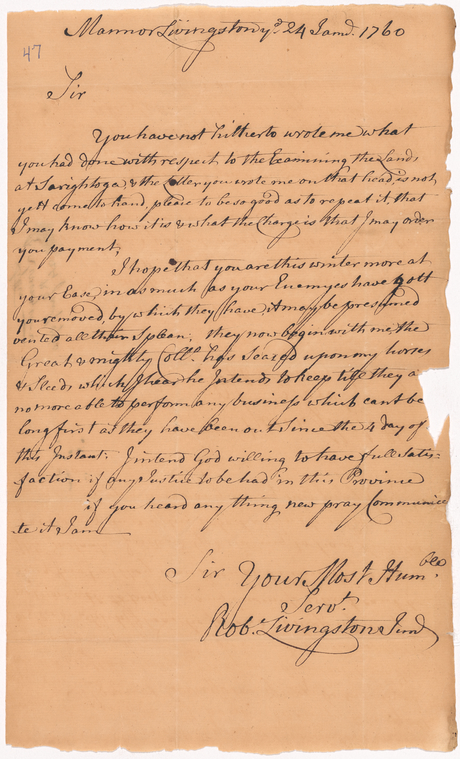 47
Mannor Livingston ye. 24 Jand. 1760
Sir
You have not hitherto wrote me what
you had done with respect to the Examining the Lands
at Sarightoga, & the Letter you wrote me on that head, is not
yett come to hand, please to be so good as to repeat it, that
I may know how it is & what the Charge is that I may order
you payment,
I hope that you are this winter more at
your Ease, in as much as your Enemyes have gott
you removed by which they have, it may be presumed
vented all their Spleen, they now begin with me, the
Great & mighty Collo. has seazed upon my horses
& Sleeds which I hear he Intends to keep till they a
no more able to perform any business which cant be
long first as they have been out since the 4 day of
this Instant. I intend God willing to have full Satis=
faction if any Justice to be had in this Province
if you heard any thing new pray Communica
te it I am
Sir Your Most Humble.
Servt.
Robt. Livingston Junr